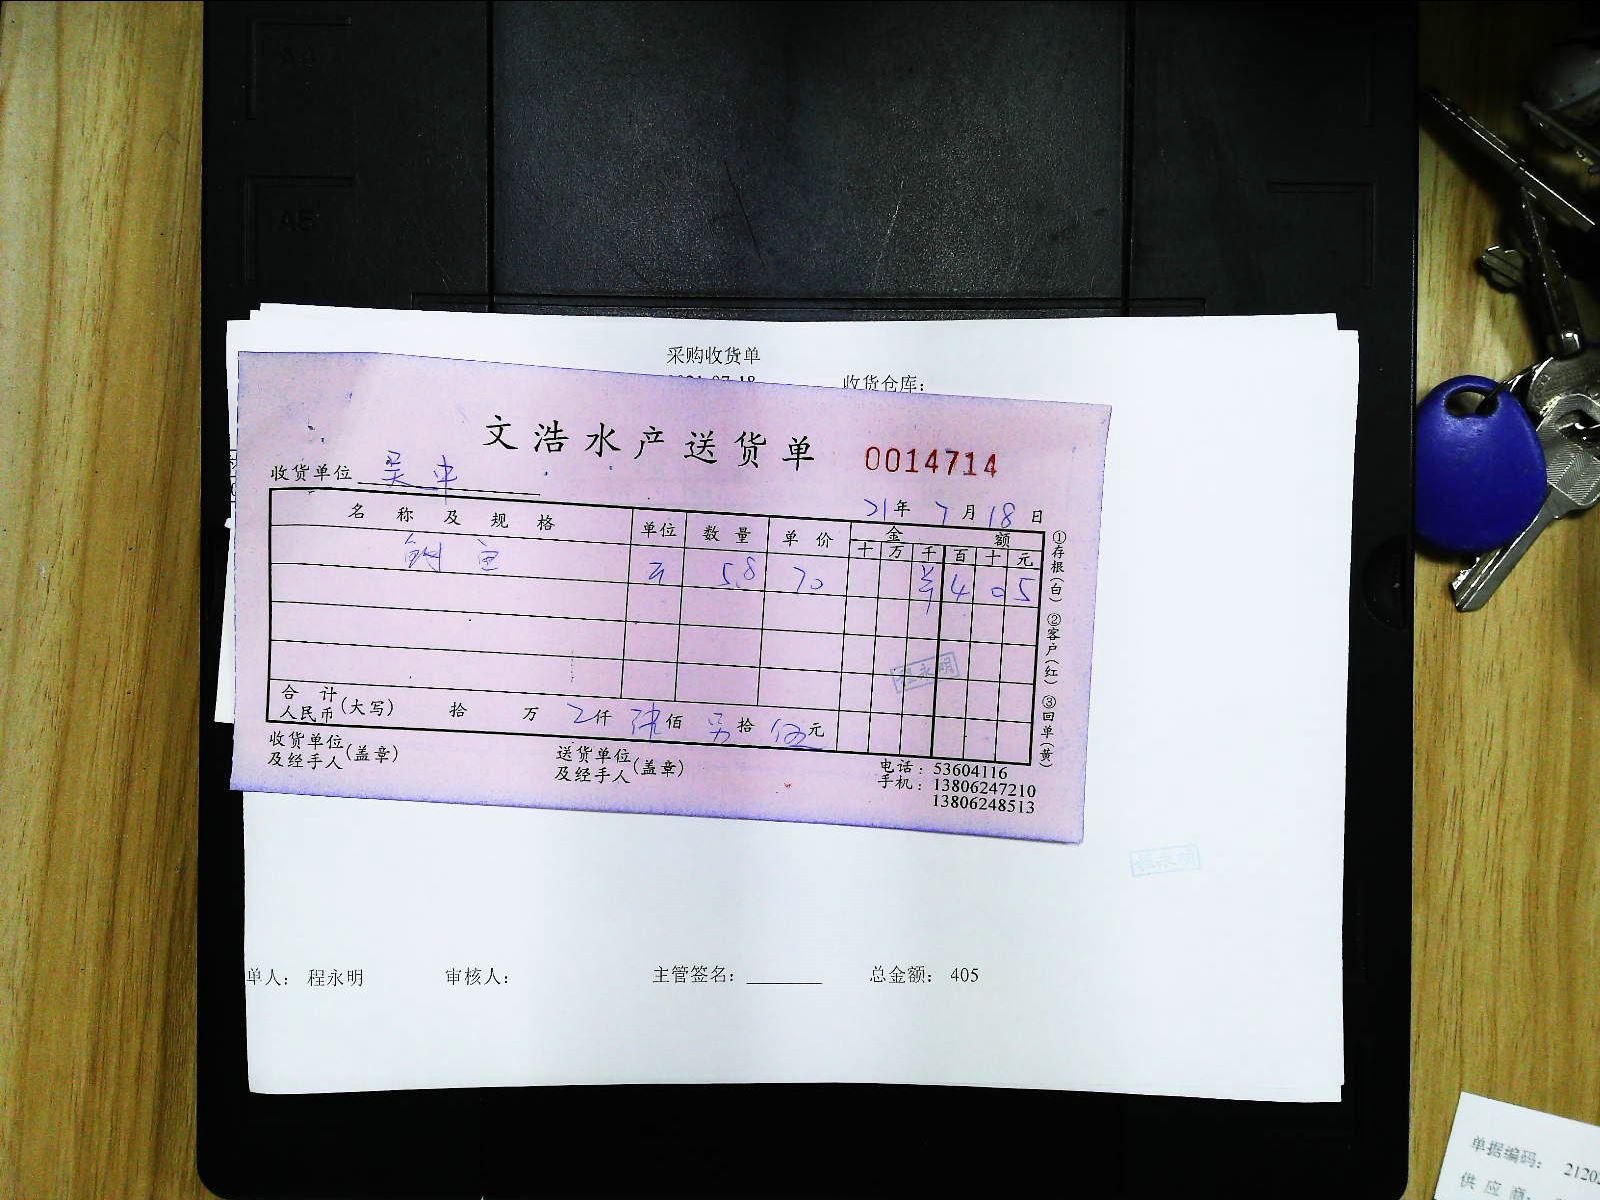 A4
A5
采购收货单
收货仓库：
文浩水产送货单 0014714
收货单位
21年 7月 18日
名称及规格 单位 数量 单价 金额
十 万 千 百 十 元
鱼 5.8 70 ¥ 4 0 5
程永明
合计
人民币（大写） 拾 万 仟 佰 拾 伍元
收货单位
及经手人（盖章）
送货单位
及经手人（盖章）
电话：53604116
手机：13806247210
13806248513
①存根（白） ②客户（红） ③回单（黄）
程永明
单人： 程永明 审核人： 主管签名： 总金额： 405
单据编码： 2120
供应商：